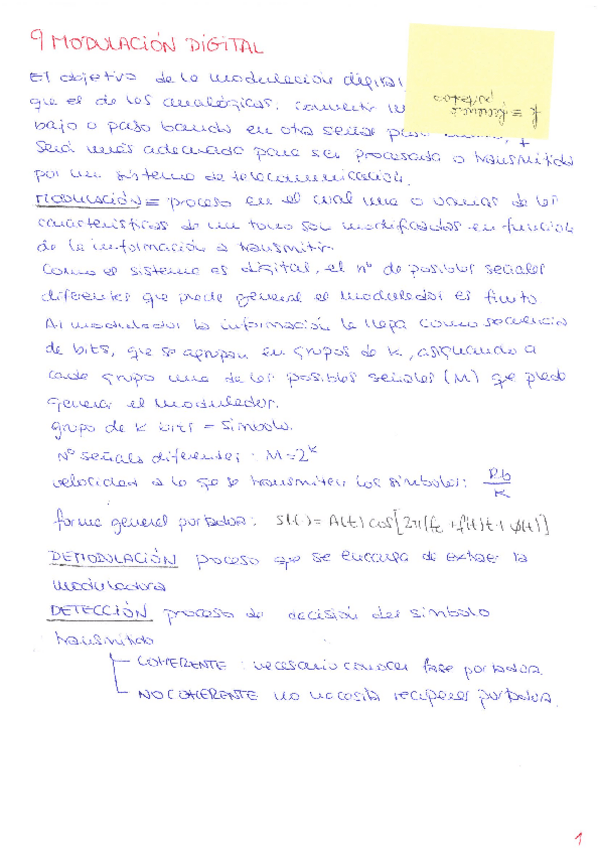 9 MODULACIÓN DIGITAL
El objetivo de la modulación digital
que el de las analógicas: convertir
bajo o paso banda en otra señal
Será más adecuada para ser procesada o transmitida
por un sistema de telecomunicación.
MODULACIÓN = proceso en el cual una o varias de las
características de un tono son modificadas en función
de la información a transmitir
Como el sistema es digital, el nº de posibles señales
diferentes que puede generar el modulador es finito
Al modulador la información le llega como secuencia
de bits, que se agrupan en grupos de k, asignando a
cada grupo una de las posibles señales (M) que puede
generar el modulador.
grupo de k bits = símbolo.
Nº señales diferentes: M=2^k
velocidad a la que se transmiten los símbolos: Rb/K
forma general portadora: s(t) = A(t) cos[2π(fc + f(t))t + φ(t)]
DEMODULACIÓN proceso que se encarga de extraer la
moduladora
DETECCIÓN proceso de decisión del símbolo
transmitido
COHERENTE: necesario conocer fase portadora.
NO COHERENTE no necesita recuperar portadora.
f = frecuencia
portadora
1